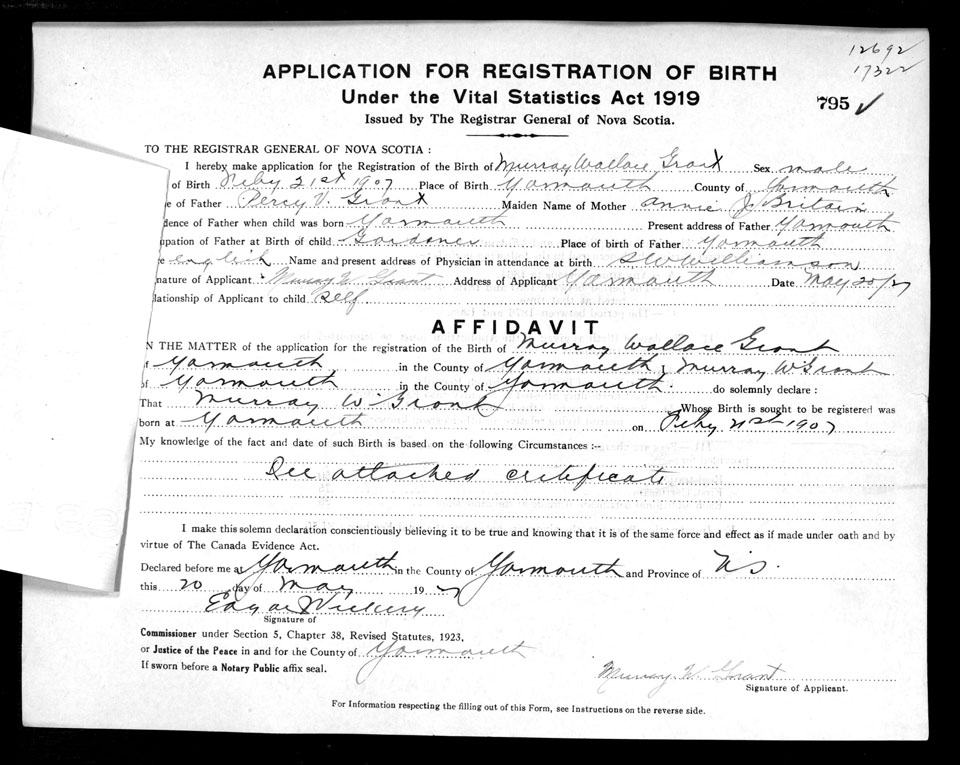 12692
17322
APPLICATION FOR REGISTRATION OF BIRTH
Under the Vital Statistics Act 1919
795 ✓
Issued by The Registrar General of Nova Scotia.
TO THE REGISTRAR GENERAL OF NOVA SCOTIA :
I hereby make application for the Registration of the Birth of Murray Wallace Grant Sex male
of Birth Feby 21st 1907 Place of Birth Yarmouth County of Yarmouth
e of Father Percy V. Grant Maiden Name of Mother Annie J. Britain
dence of Father when child was born Yarmouth Present address of Father Yarmouth
upation of Father at Birth of child Gardener Place of birth of Father Yarmouth
e english Name and present address of Physician in attendance at birth S W Williamson
nature of Applicant Murray W. Grant Address of Applicant Yarmouth Date May 20/27
lationship of Applicant to child Self.
AFFIDAVIT
N THE MATTER of the application for the registration of the Birth of Murray Wallace Grant
of Yarmouth in the County of Yarmouth, Murray W Grant
of Yarmouth in the County of Yarmouth. do solemnly declare :
That Murray W Grant Whose Birth is sought to be registered was
born at Yarmouth on Feby 21st 1907
My knowledge of the fact and date of such Birth is based on the following Circumstances :--
See attached certificate
I make this solemn declaration conscientiously believing it to be true and knowing that it is of the same force and effect as if made under oath and by
virtue of The Canada Evidence Act.
Declared before me at Yarmouth in the County of Yarmouth and Province of N.S.
this 20 day of May 1927
Edgar Vickery
Signature of
Commissioner under Section 5, Chapter 38, Revised Statutes, 1923,
or Justice of the Peace in and for the County of Yarmouth
If sworn before a Notary Public affix seal.
Murray W. Grant
Signature of Applicant.
For Information respecting the filling out of this Form, see Instructions on the reverse side.